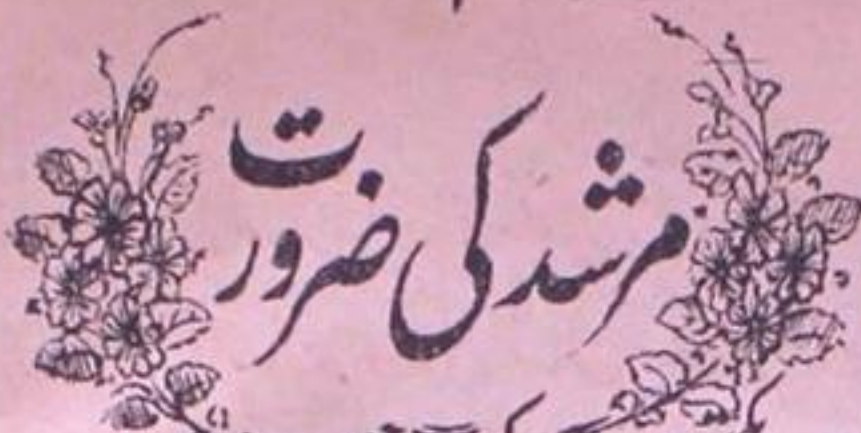 مرشد کی ضرورت